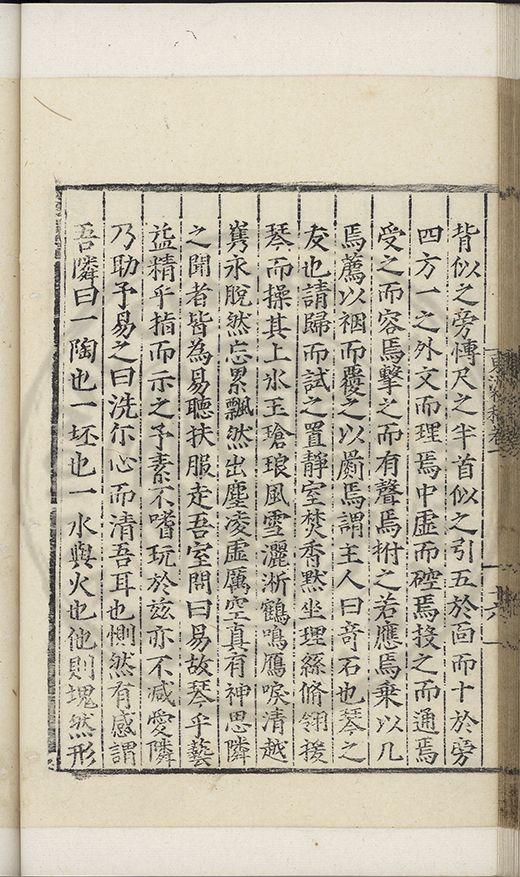 背似之旁博尺之半首似之引五於面而十於旁
四方一之外文而理焉中虛而硿焉投之而通焉
受之而容焉擊之而有聲焉拊之若應焉乗以几
焉薦以裀而覆之以罽焉謂主人曰竒石也琴之
友也請歸而試之置靜室焚香黙坐理絲脩翎援
琴而操其上氷玉瑲琅風雪灑淅鶴鳴鴈唳清越
雋永脫然忘累飄然出塵凌虛厲空真有神思隣
之聞者皆為易聽扶服走吾室問曰易故琴乎藝
益精乎指而示之予素不嗜玩於玆亦不减愛隣
乃助予易之曰洗尓心而清吾耳也惻然有感謂
吾隣曰一陶也一坯也一水與火也他則塊然形